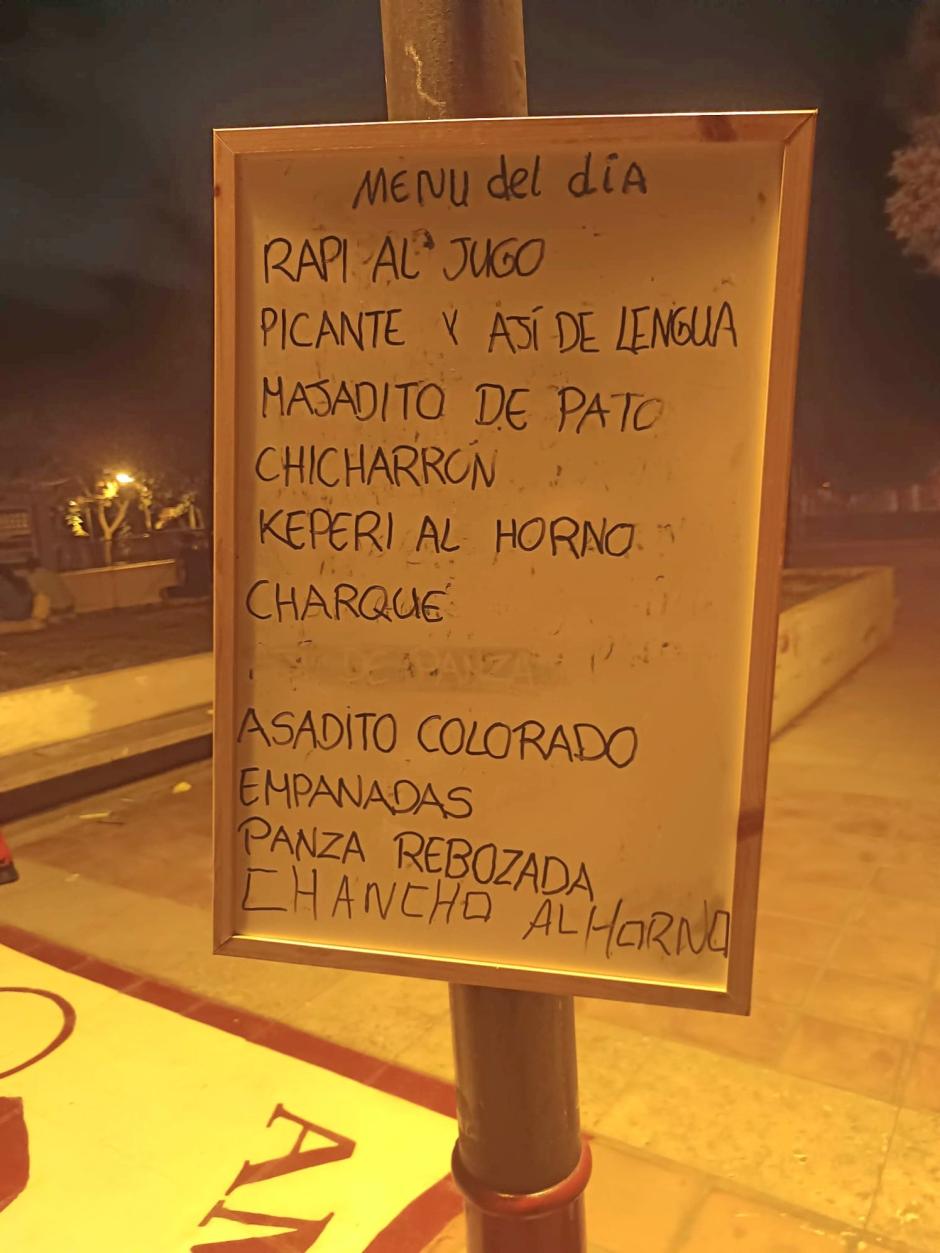 MENU del díA
RAPI AL JUGO
PICANTE Y AJÍ DE LENGUA
MAJADITO DE PATO
CHICHARRÓN
KEPERI AL HORNO
CHARQUE
DE PANZA
ASADITO COLORADO
EMPANADAS
PANZA REBOZADA
CHANCHO AL HORNO